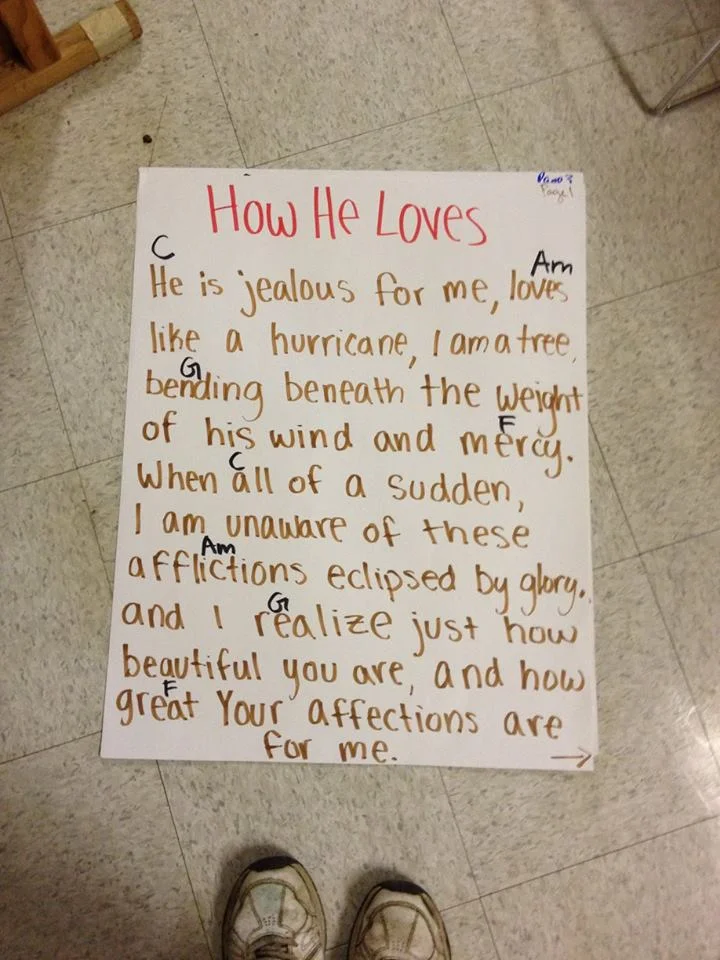 Page 1
How He Loves
C
Am
He is jealous for me, loves
like a hurricane, I am a tree,
G
bending beneath the weight
F
of his wind and mercy.
C
When all of a sudden,
I am unaware of these
Am
afflictions eclipsed by glory.
G
and I realize just how
beautiful you are, and how
F
great Your affections are
for me.